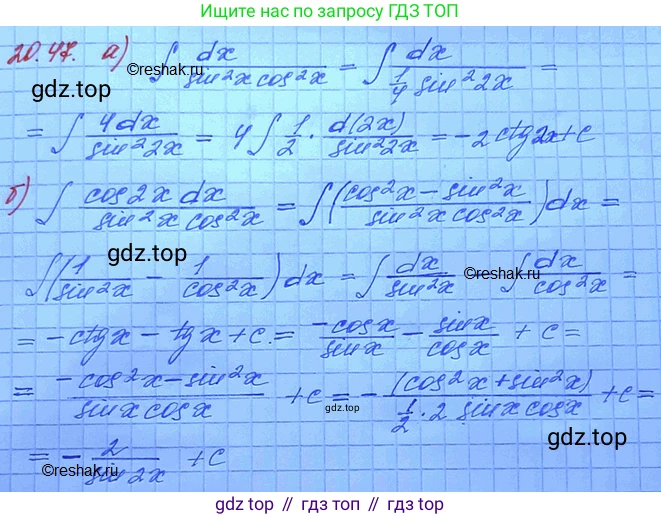 Ищите нас по запросу ГДЗ ТОП
20.47. а) ∫ dx / (sin²x cos²x) = ∫ dx / (1/4 sin²2x) =
©reshak.ru
гдз.top
= ∫ 4dx / sin²2x = 4∫ 1/2 · d(2x) / sin²2x = -2ctg2x+c
б) ∫ cos2x dx / (sin²x cos²x) = ∫ ((cos²x - sin²x) / (sin²x cos²x)) dx =
гдз.top
∫ (1/sin²x - 1/cos²x) dx = ∫ dx/sin²x ∫ dx/cos²x =
©reshak.ru
= -ctgx - tgx + c. = -cosx/sinx - sinx/cosx + c =
= (-cos²x - sin²x) / (sinx cosx) + c = - (cos²x + sin²x) / (1/2 · 2 sinx cosx) + c =
гдз.top
= - 2/sin2x + c
©reshak.ru
гдз.top
гдз.top // гдз топ // gdz top